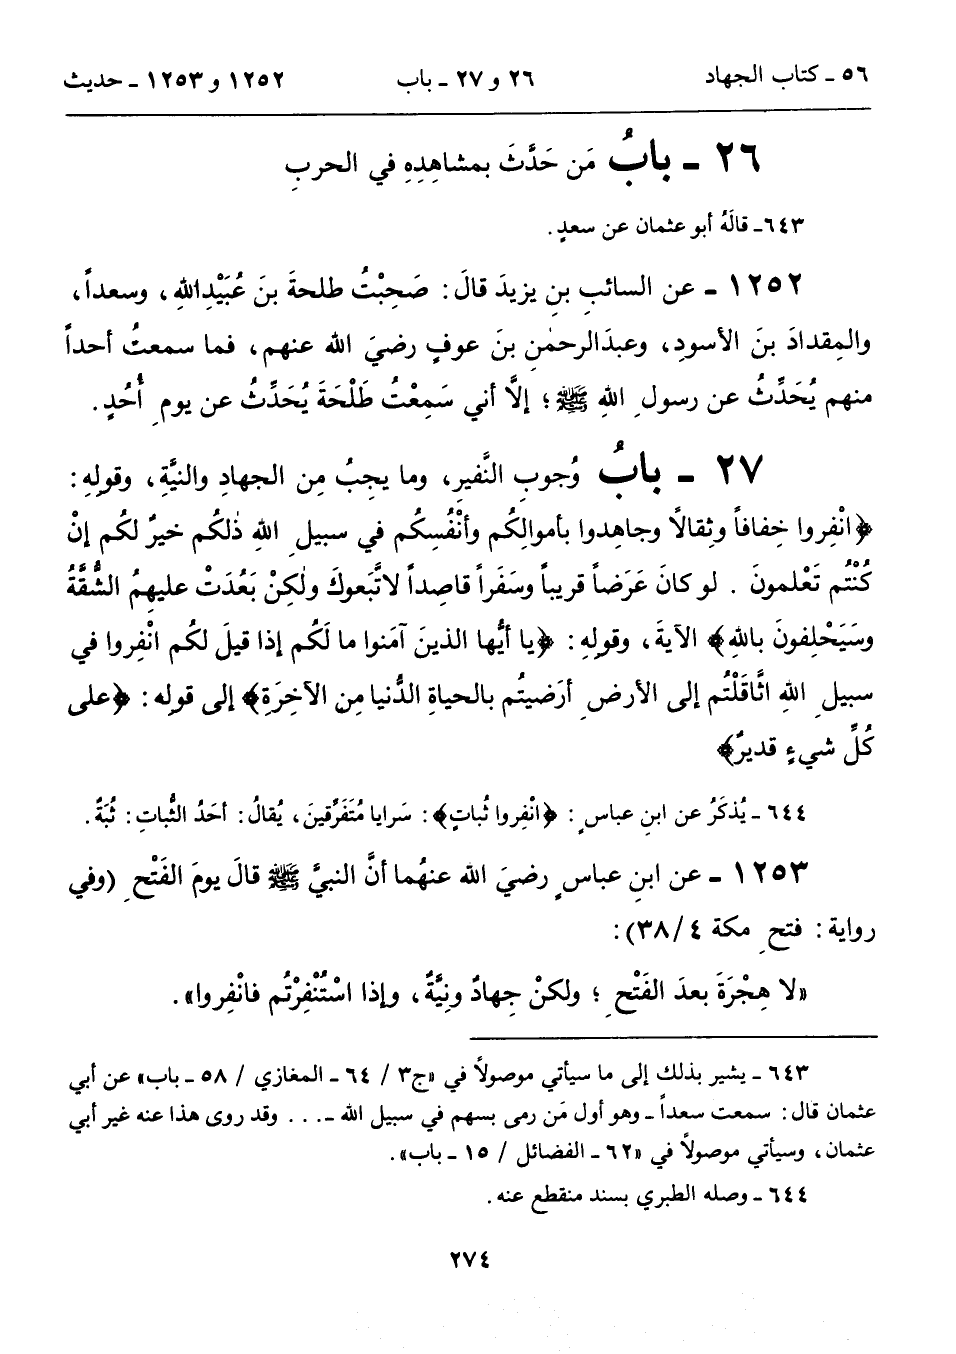 ٥٦ ـ كتاب الجهاد ٢٦ و ٢٧ ـ باب ١٢٥٢ و ١٢٥٣ ـ حديث
٢٦ ـ بابُ مَن حَدَّثَ بمشاهِدِهِ في الحربِ
٦٤٣ـ قالَهُ أبو عثمان عن سعدٍ.
١٢٥٢ ـ عن السائبِ بنِ يزيدَ قالَ: صَحِبْتُ طلحةَ بنَ عُبَيْدِاللهِ، وسعداً،
والمِقدادَ بنَ الأسودِ، وعبدَالرحمٰنِ بنَ عوفٍ رضيَ الله عنهم، فما سمعتُ أحداً
منهم يُحَدِّثُ عن رسولِ اللهِ ﷺ؛ إلَّا أني سَمِعْتُ طَلْحَةَ يُحَدِّثُ عن يومِ أُحُدٍ.
٢٧ ـ بابُ وُجوبِ النَّفيرِ، وما يجبُ مِن الجهادِ والنيَّةِ، وقولِهِ:
﴿انْفِروا خِفافاً وثِقالًا وجاهِدوا بأموالِكُم وأنْفُسِكُم في سبيلِ اللهِ ذٰلكُم خيرٌ لكُم إنْ
كُنْتُم تَعْلمونَ . لو كانَ عَرَضاً قريباً وسَفَراً قاصِداً لاتَّبَعوكَ ولٰكِنْ بَعُدَتْ عليهِمُ الشُّقَّةُ
وسَيَحْلِفونَ باللهِ﴾ الآيةَ، وقولِهِ: ﴿يا أيُّها الذينَ آمَنوا ما لَكُم إذا قيلَ لكُم انْفِروا في
سبيلِ اللهِ اثَّاقَلْتُم إلى الأرضِ أرَضيتُم بالحياةِ الدُّنيا مِن الآخِرَةِ﴾ إلى قولِه: ﴿على
كُلِّ شيءٍ قديرٌ﴾
٦٤٤ ـ يُذكَرُ عن ابنِ عباسٍ: ﴿انْفِروا ثُباتٍ﴾: سَرايا مُتَفَرِّقينَ، يُقالُ: أحَدُ الثُّباتِ: ثُبَةٌ.
١٢٥٣ ـ عن ابنِ عباسٍ رضيَ الله عنهُما أنَّ النبيَّ ﷺ قالَ يومَ الفَتْحِ (وفي
رواية: فتحِ مكة ٤/ ٣٨):
«لا هِجْرَةَ بعدَ الفَتْحِ؛ ولكنْ جِهادٌ ونِيَّةٌ، وإذا اسْتُنْفِرْتُم فانْفِروا».
٦٤٣ ـ يشير بذلك إلى ما سيأتي موصولاً في «ج٣ / ٦٤ ـ المغازي / ٥٨ ـ باب» عن أبي
عثمان قال: سمعت سعداً ـ وهو أول مَن رمى بسهم في سبيل الله ـ... وقد روى هذا عنه غير أبي
عثمان، وسيأتي موصولاً في «٦٢ ـ الفضائل / ١٥ ـ باب».
٦٤٤ ـ وصله الطبري بسند منقطع عنه.
٢٧٤